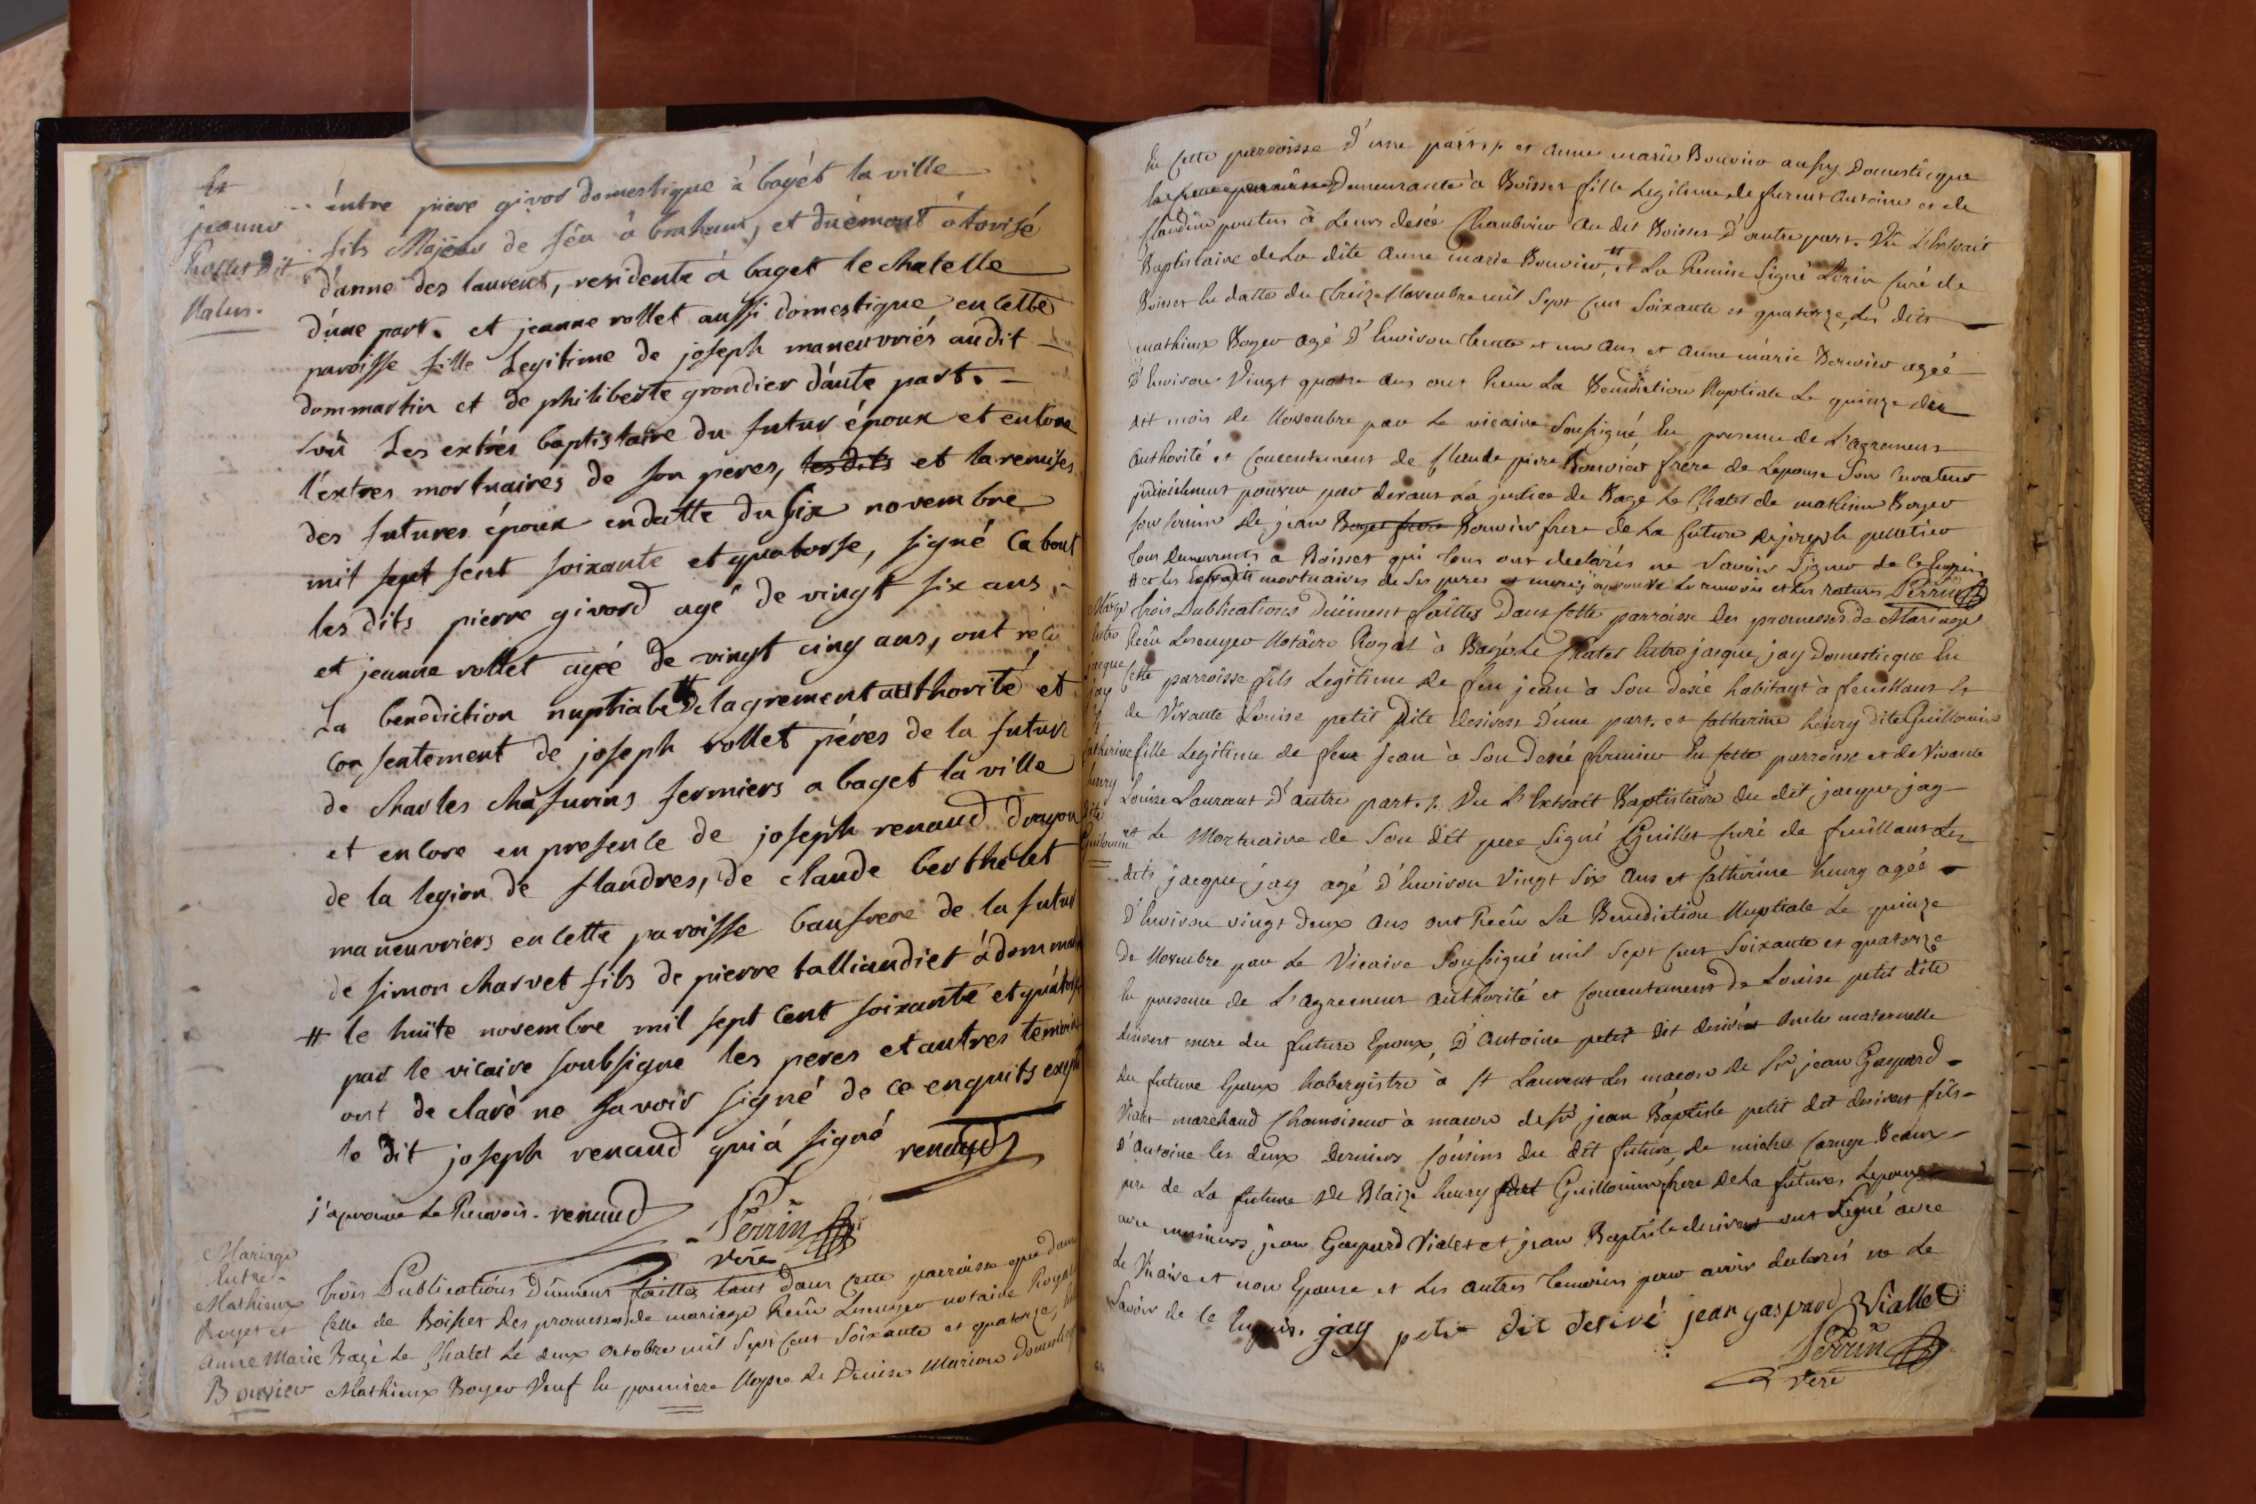 Et
jeanne
Rollet dit
Nalus.
entre pière givor domestique à bagét la ville
fils Majeur de féu a braham, et duément otorisé
d'anne des laurent, residente à baget le chatelle
d'une part. et jeanne rollet aussi domestique en cette
paroisse fille Legitime de joseph maneuvriés audit
dommartin et de philiberte grondier d'aute part.
vû Les extres baptistaire du futur époux et encore
l'extres mortuaires de son peres, les dits et la remises
des futures époux en datte du six novembre
mil sept sent soixante et quatorse, signé Cabout
les dits pierre givord agé de vingt six ans
et jeanne rollet agéé de vingt cinq ans, ont réçu
La benediction nuptiale # De lagrement authorité et
consentement de joseph rollet péres de la futur
de charles chafurins fermiers a baget la ville
et encore en presence de joseph renaud dragon
de la legion de flandres, de claude berthelet
maneuvriers en cette paroisse baufrere de la futur
de simon charvet fils de pierre talliandiet à dommar
# le huite novembre mil sept cent soixante et quatorse
par le vicaire soubsigne les peres et autres temoins
ont de claré ne savoir signé de ce enquits excepté
le dit joseph renaud qui à signé renaud
j'aprouve Le Renvois. renaud Perrin
vire
Mariage
Entre
Mathieux
Boyer et
Anne Marie
Bouvier
trois Publications Dûment faittes tant dans cette parroisse que dans
celle de Boisset des promesses de mariage Recûs Lescuyer notaire Royal
Bagé Le Chatel Le deux octobre mil Sept Cent Soixante et quatorze,
Mathieux Boyer Veuf En premiere Nopce de Denise Marion domestique
En cette parroisse d'une part, et anne marie Bouvier aussy Domesticque
Demeurante à Boisset fille Legitime de feu Antoine et de
Claudine à Leurs desée au dit Boisset D'autre part. Vu L'Extrait
Baptistaire de La dite anne marie Bouvier, # et La Remise Signé Curé de
Boisset En datte du treize Novembre mil Sept Cent Soixante et quatorze, Les dits
mathieux Boyer agé d'Environ trente et un ans et anne marie Bouvier agéé
D'Environ Vingt quatre ans ont Recu La Benediction Nuptiale Le quinze des
dit mois de Novembre par Le vicaire Soussigné En presence de L'agrement
authorité et Concentement de Claude pierre Bouvier frere de Lepouse Son Curateur
pourvu par devant La justice de Bagé Le Chatel de mathieu Boyer
de jean Boyer frere Bouvier frere de La future de joseph pelletier
tous demeurants a Boisset qui tous ont declarés ne Savoir Signer de ce Enquis
# et les Extraits mortuaires de Ses peres et mere j'aprouve Le renvois et Les ratures Perrin
Mariage
Entre
jacque
jay
et
Catherine
henry
dite
Guillomin
trois Publications Duëment faittes Dans cette parroisse Des promesses de Mariage
Recûs Lescuyer Notaire Royal à Bagé Le Chatel Entre jacque jay Domesticque En
Cette parroisse fils Legitime de feu jean à Son desée habitant à feuillant et
de Vivante Louise petit Dite desivert D'une part. et Catherine henry dite Guillomin
fille Legitime de feu jean à Son Desée fermier En cette parroisse et de Vivante
Louise Laurant D'autre part. Vu L'Extrait Baptistaire du dit jacque jay
et Le Mortuaire de Son dit pere Signé Guillet Curé de feuillant Les
dits jacque jay agé d'Environ Vingt Six Ans et Catherine henry agéé
D'Environ vingt deux ans ont Recûs La Benediction Nuptiale Le quinze
De Novembre par Le Vicaire Soussigné mil Sept Cent Soixante et quatorze
En presence de L'agrement authorité et Concentement de Louise petit dite
desivert mere du future Epoux, d'Antoine petit dit desivert oncle maternelle
du future Epoux habergistre à St Laurent Les macon de Sr jean Gaspard
Vialet marchand Chamoiseur à macon de Sr jean Baptiste petit dit desivert fils
d'antoine les deux derniers Cousins du dit future, de michel Beau
pere de La future de Blaize henry dit Guillomin frere de La future, Lepoux
avec messieurs jean Gaspard Vialet et jean Baptiste desivert ont Signé avec
Le Vicaire et non Epouse et Les autres temoins pour avoir declarés ne Le
Savoir de ce Enquis. jay petit dit desivé jean gaspard Viallet
Perrin
vire